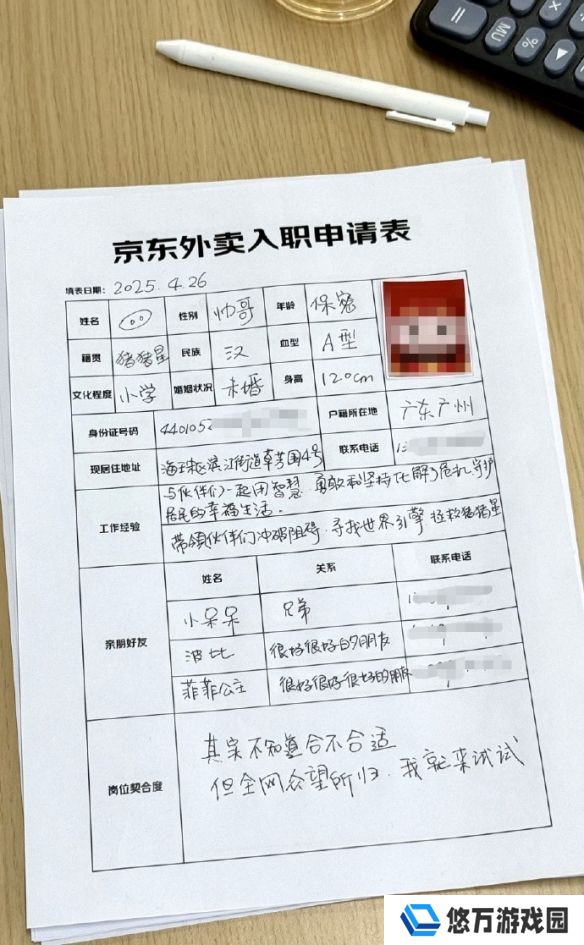 京东外卖入职申请表
填表日期： 2025.4.26
姓名 性别 帅哥 年龄 保密
籍贯 猪猪星 民族 汉 血型 A型
文化程度 小学 婚姻状况 未婚 身高 120cm
身份证号码 440105 户籍所在地 广东广州
现居住地址 海珠区滨江街道草芳围4号 联系电话 1
工作经验
与伙伴们一起用智慧、勇敢和坚持化解危机,守护
居民的幸福生活。
带领伙伴们冲破阻碍,寻找世界引擎,拯救猪猪星
亲朋好友 姓名 关系 联系电话
小呆呆 兄弟 1
波比 很好很好的朋友
菲菲公主 很好很好很好的朋友
岗位契合度
其实不知道合不合适
但全网众望所归,我就来试试
MU
%
悠万游戏园